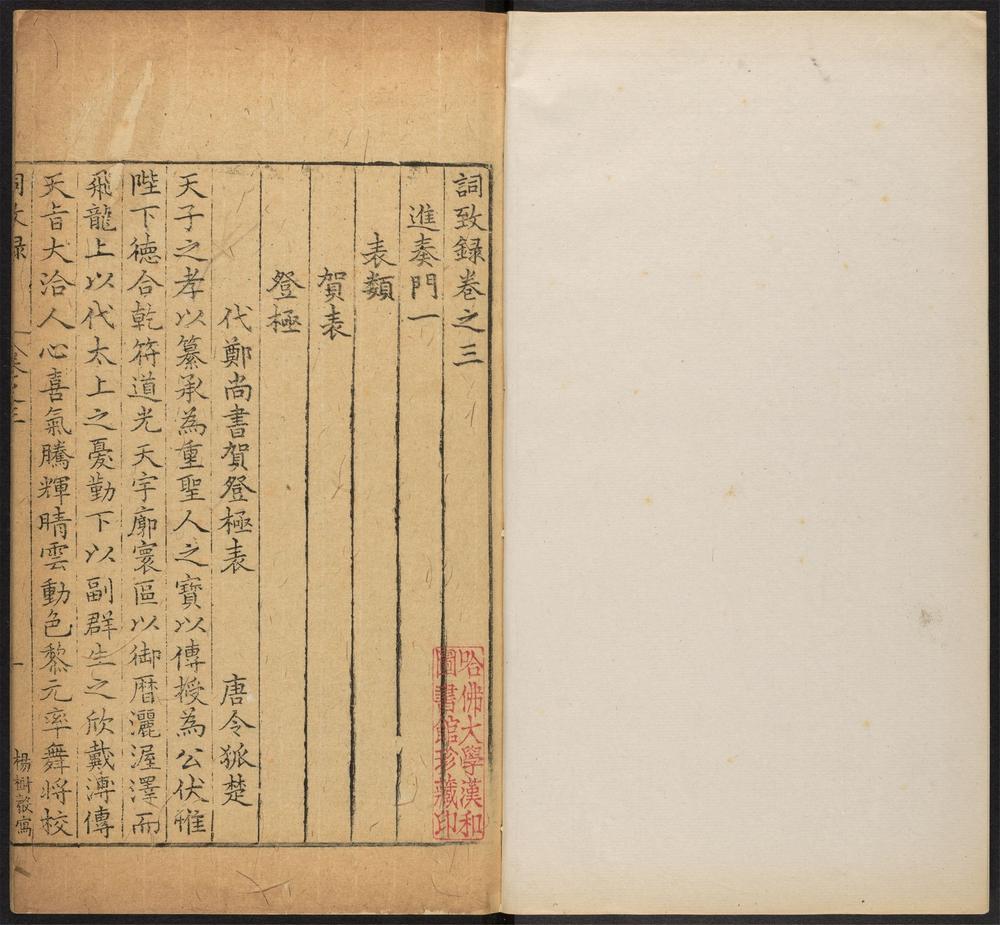 詞致録卷之三
進奏門一
表類
賀表
登極
代鄭尚書賀登極表 唐令狐楚
天子之孝以纂承為重聖人之寶以傳授為公伏惟
陛下德合乾符道光天宇廓寰區以御曆灑渥澤而
飛龍上以代太上之憂勤下以副群生之欣戴溥傳
天旨大洽人心喜氣騰輝晴雲動色黎元率舞將校
詞致録 卷之三 一
哈佛大學漢和
圖書館珍藏印